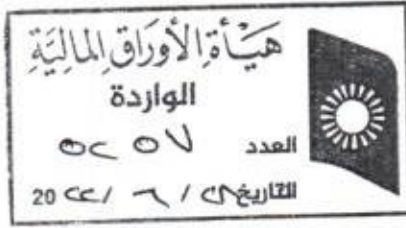 هَيْأَةُ الأَوْرَاقِ المَالِيَّةِ
الواردة
العدد ٥٢٥٧
التاريخ / ٦ / 20٢٢